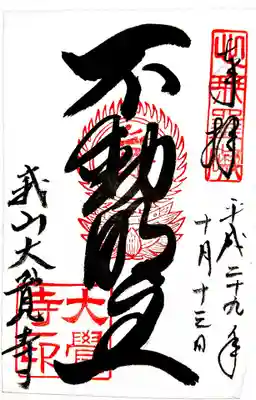 奉拝
平成二十九年
十月十三日
不動明王
山大覚寺
大覺
寺印